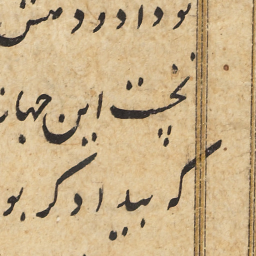 تو داد و دهش
نخست این جهان
که بیدادگر بو